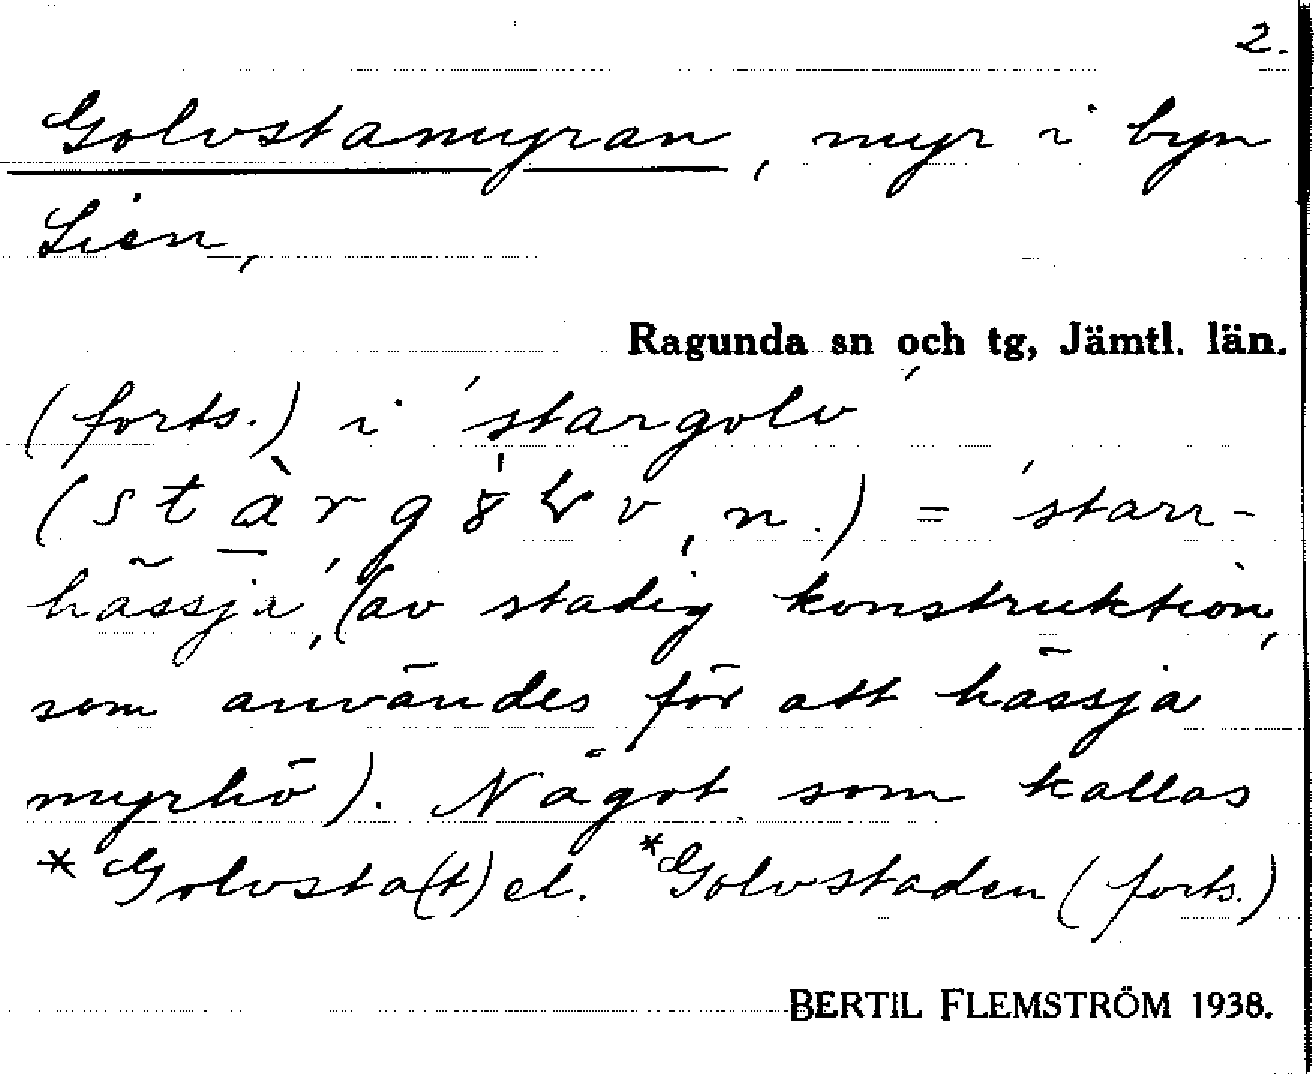 2.
Golvstamyran, myr i byn
Lien,
Ragunda sn och tg, Jämtl. län.
(forts.) i 'stargolv'
n.) = 'starr-
hässja', (av stadig konstruktion,
som användes för att hässja
myrhö). Något som kallas
*Golvsta(t) el. *Golvstaden (forts.)
BERTIL FLEMSTRÖM 1938.